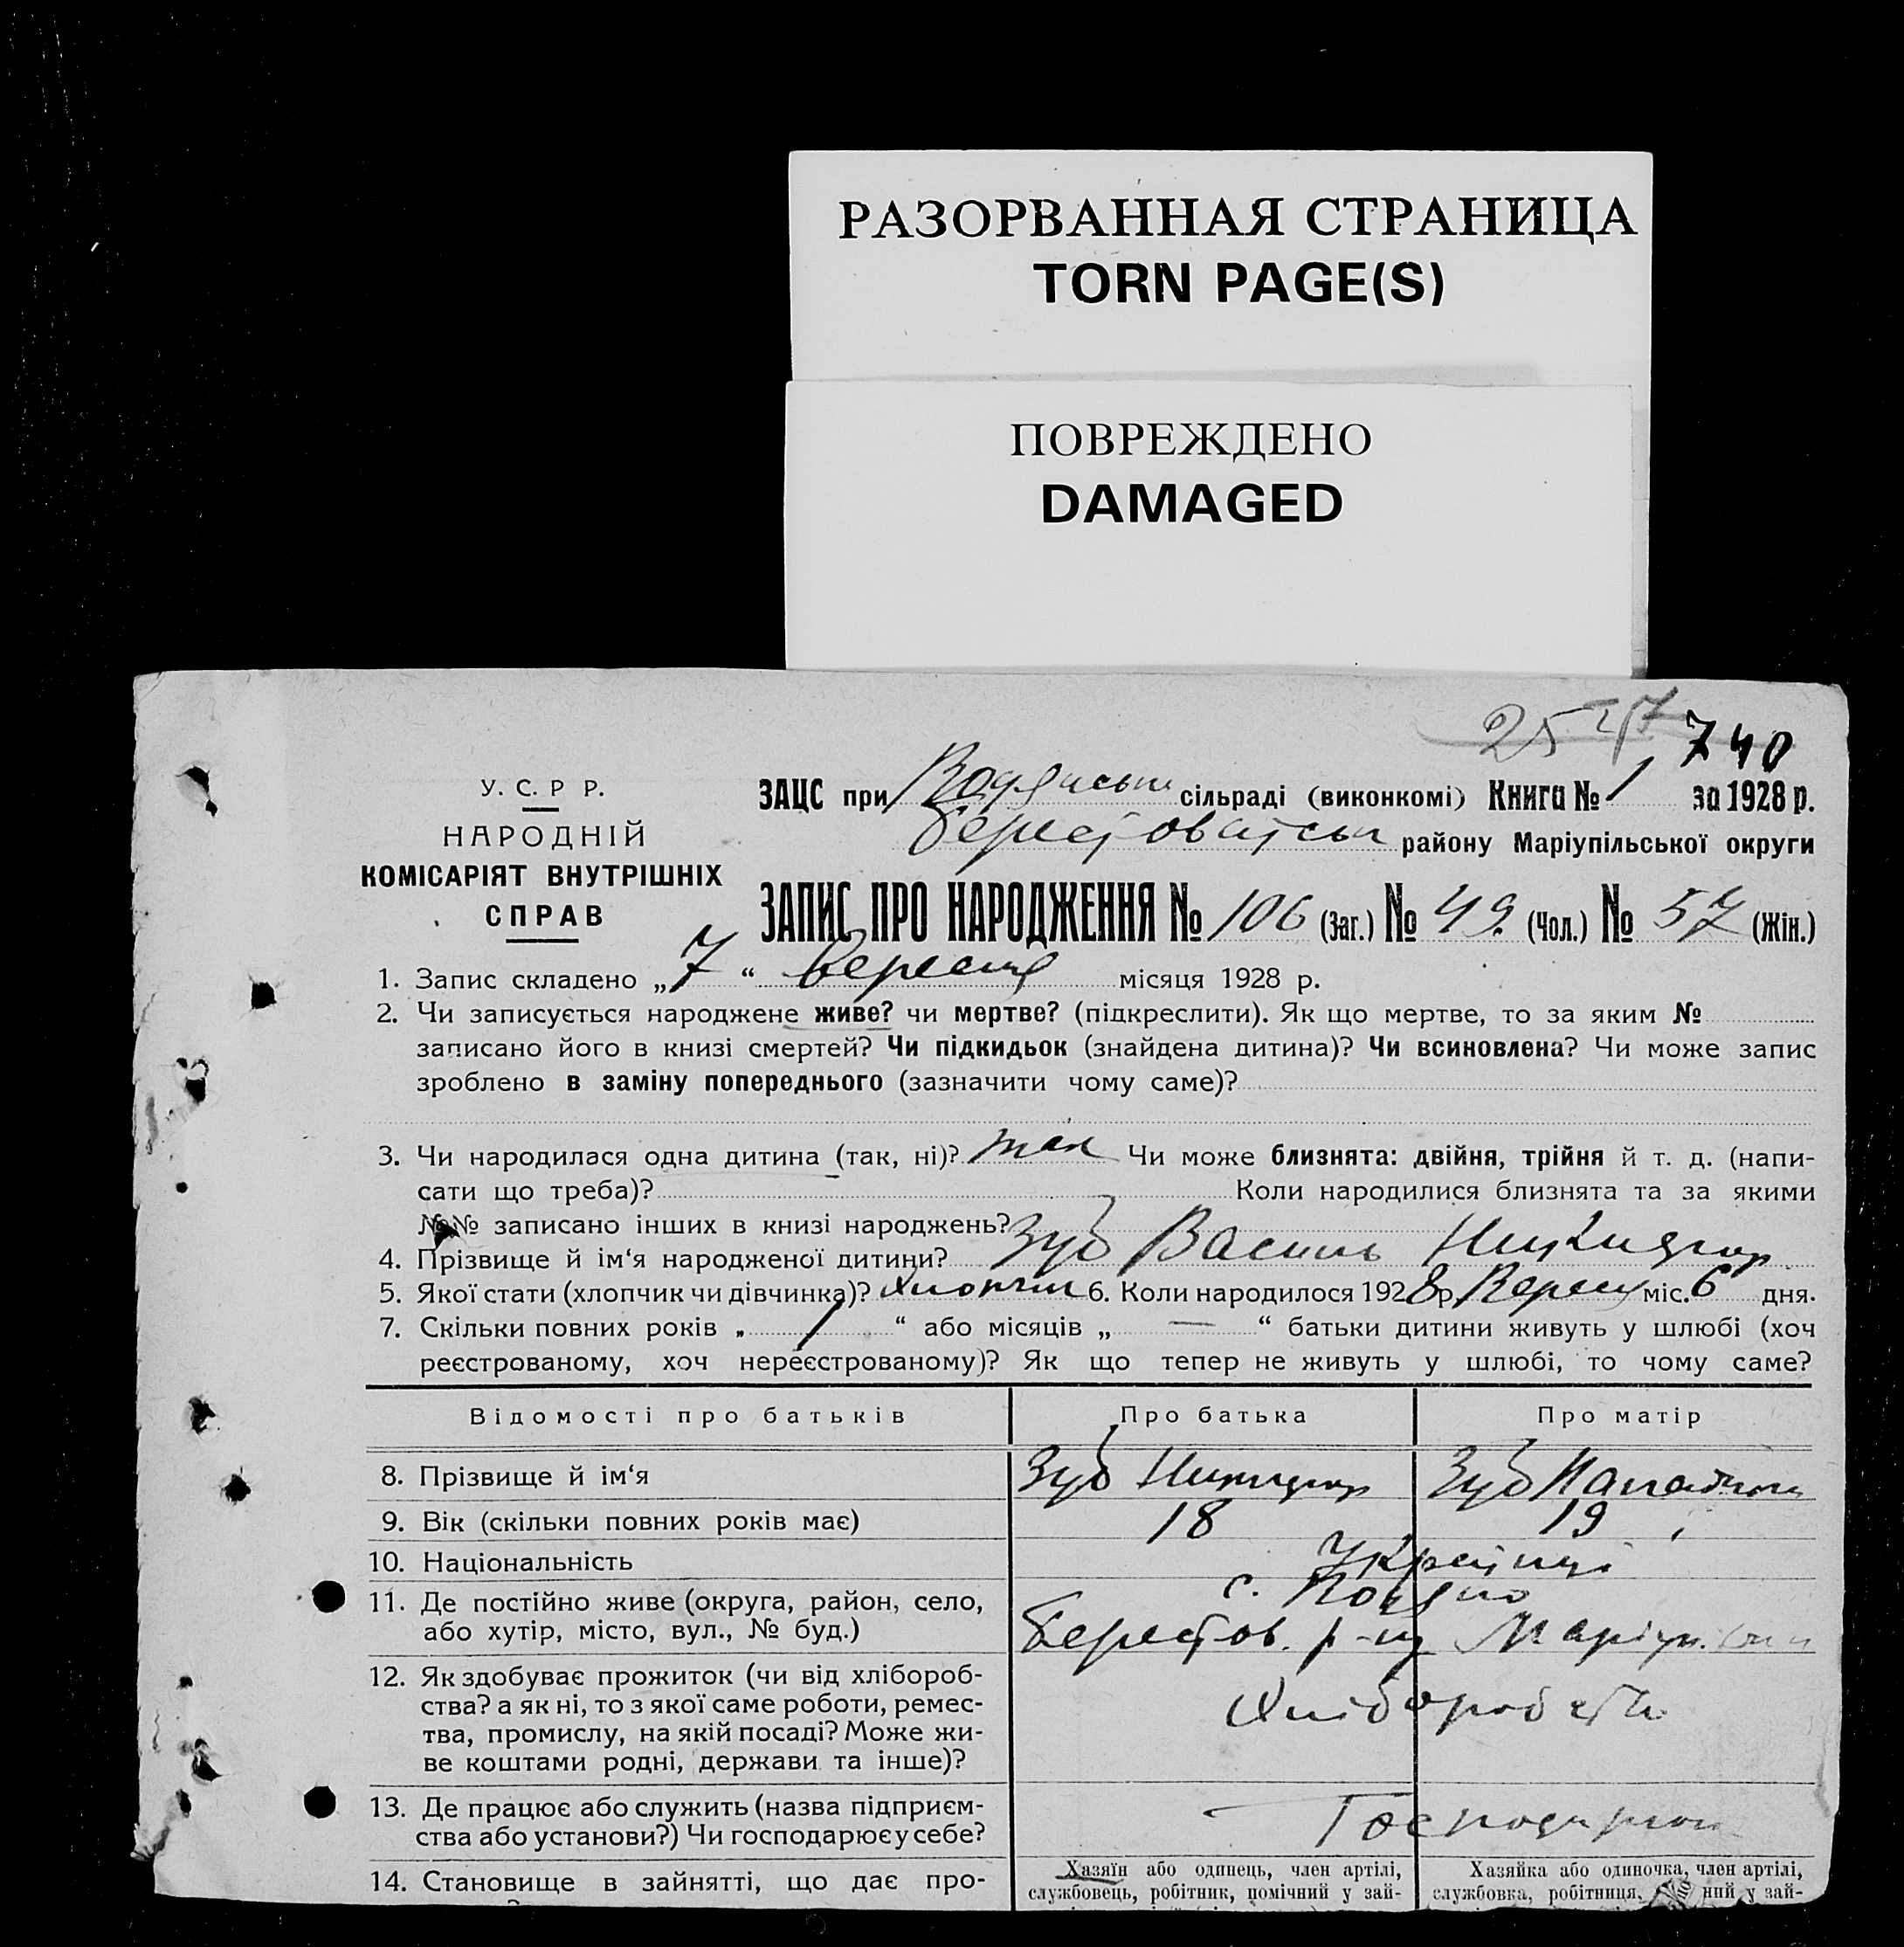 РАЗОРВАННАЯ СТРАНИЦА
TORN PAGE(S)
ПОВРЕЖДЕНО
DAMAGED
25 740
У. С. Р Р.
НАРОДНІЙ
КОМІСАРІЯТ ВНУТРІШНІХ
СПРАВ
ЗАЦС при сільраді (виконкомі) Книга № 1 за 1928 р.
району Маріупільської округи
ЗАПИС ПРО НАРОДЖЕННЯ № 106 (Заг.) № 49 (Чол.) № 57 (Жін.)
1. Запис складено „ 7 “ Вересня місяця 1928 р.
2. Чи записується народжене живе? чи мертве? (підкреслити). Як що мертве, то за яким №
записано його в книзі смертей? Чи підкидьок (знайдена дитина)? Чи всиновлена? Чи може запис
зроблено в заміну попереднього (зазначити чому саме)?
3. Чи народилася одна дитина (так, ні)? так Чи може близнята: двійня, трійня й т. д. (напи-
сати що треба)? Коли народилися близнята та за якими
№№ записано інших в книзі народжень?
4. Прізвище й ім‘я народженої дитини? Зуб Василь
5. Якої стати (хлопчик чи дівчинка)? Хлопчик 6. Коли народилося 1928 р. Вересня міс. 6 дня.
7. Скільки повних років „ 1 “ або місяців „ — “ батьки дитини живуть у шлюбі (хоч
реєстрованому, хоч нереєстрованому)? Як що тепер не живуть у шлюбі, то чому саме?
Відомості про батьків Про батька Про матір
8. Прізвище й ім‘я Зуб Зуб
9. Вік (скільки повних років має) 18 19
10. Національність Українці
11. Де постійно живе (округа, район, село, с.
або хутір, місто, вул., № буд.) Берестов. р-ну Маріуп.
12. Як здобуває прожиток (чи від хлібороб-
ства? а як ні, то з якої саме роботи, ремес-
тва, промислу, на якій посаді? Може жи-
ве коштами родні, держави та інше)?
13. Де працює або служить (назва підприєм-
ства або установи?) Чи господарює у себе?
14. Становище в зайнятті, що дає про-
Хазяїн або одинець, член артілі,
службовець, робітник, помічний у зай-
Хазяйка або одиночка, член артілі,
службовка, робітниця, ний у зай-